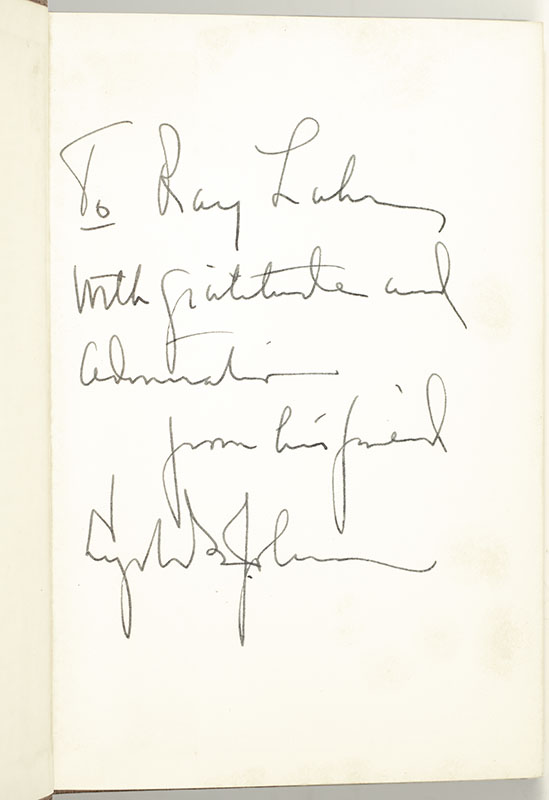 To Ray Lahr
with gratitude and
admiration
from his friend
Lyndon B Johnson